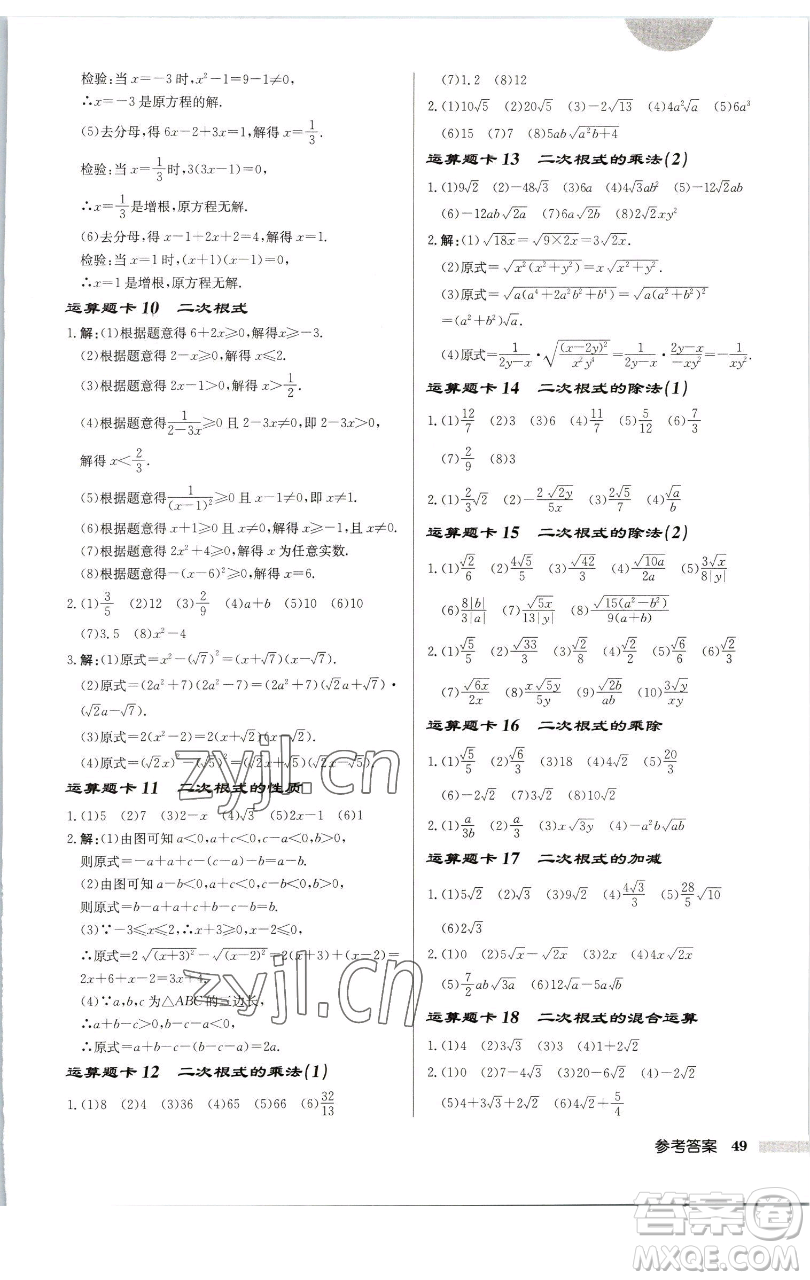 检验:当 x=-3 时,x²-1=9-1≠0,
∴x=-3 是原方程的解.
(5)去分母,得 6x-2+3x=1,解得 x=1/3.
检验:当 x=1/3时,3(3x-1)=0,
∴x=1/3是增根,原方程无解.
(6)去分母,得 x-1+2x+2=4,解得 x=1.
检验:当 x=1 时,(x+1)(x-1)=0,
∴x=1 是增根,原方程无解.
运算题卡 10 二次根式
1.解:(1)根据题意得 6+2x≥0,解得 x≥-3.
(2)根据题意得 2-x≥0,解得 x≤2.
(3)根据题意得 2x-1>0,解得 x>1/2.
(4)根据题意得 1/(2-3x)≥0 且 2-3x≠0,即 2-3x>0,
解得 x<2/3.
(5)根据题意得 1/(x-1)²≥0 且 x-1≠0,即 x≠1.
(6)根据题意得 x+1≥0 且 x≠0,解得 x≥-1 且 x≠0.
(7)根据题意得 2x²+4≥0,解得 x 为任意实数.
(8)根据题意得-(x-6)²≥0,解得 x=6.
2.(1)3/5 (2)12 (3)2/9 (4)a+b (5)10 (6)10
(7)3.5 (8)x²-4
3.解:(1)原式=x²-(√7)²=(x+√7)(x-√7).
(2)原式=(2a²+7)(2a²-7)=(2a²+7)(√2a+√7)·
(√2a-√7).
(3)原式=2(x²-2)=2(x+√2)(x-√2).
(4)原式=(√2x)²-(√5)²=(√2x+√5)(√2x-√5).
运算题卡 11 二次根式的性质
1.(1)5 (2)7 (3)2-x (4)√3 (5)2x-1 (6)1
2.解:(1)由图可知 a<0,a+c<0,c-a<0,b>0,
则原式=-a+a+c-(c-a)+b=a-b.
(2)由图可知 a-b<0,a+c<0,
则原式=b-a+a+c+b-c-b=b.
(3)∵-3≤x≤2,∴x+3≥0,x-2≤0,
∴原式=2√(x+3)²-√(x-2)²=2(x+3)+(x-2)=
2x+6+x-2=3x+4.
(4)∵a,b,c 为△ABC 的三边长,
∴a+b-c>0,b-c-a<0,
∴原式=a+b-c-(b-c-a)=2a.
运算题卡 12 二次根式的乘法(1)
1.(1)8 (2)4 (3)36 (4)65 (5)66 (6)32/13
(7)1.2 (8)12
2.(1)10√5 (2)20√3 (3)-2√13 (4)4a²√a (5)6a³
(6)15 (7)7 (8)5ab√(a²b+4)
运算题卡 13 二次根式的乘法(2)
1.(1)9√2 (2)-48√3 (3)6a (4)4√3ab² (5)-12√2ab
(6)-12ab√2a (7)6a√2b (8)2√2xy²
2.解:(1)√18x=√(9×2x)=3√2x.
(2)原式=√(x²(x²+y²))=x√(x²+y²).
(3)原式=√(a(a⁴+2a²b²+b⁴))=√(a(a²+b²)²)
=(a²+b²)√a.
(4)原式=1/(2y-x)·√((x-2y)²/(x²y⁴))=1/(2y-x)·(2y-x)/(-xy²)=-1/(xy²).
运算题卡 14 二次根式的除法(1)
1.(1)12/7 (2)3 (3)6 (4)11/7 (5)5/12 (6)7/3
(7)2/9 (8)3
2.(1)2/3√2 (2)-2√2y/5x (3)2√5/7 (4)√a/b
运算题卡 15 二次根式的除法(2)
1.(1)√2/6 (2)4√5/5 (3)√42/3 (4)√10a/2a (5)3√x/8|y|
(6)8|b|/3|a| (7)√5x/13|y| (8)√(15(a²-b²))/9(a+b)
2.(1)√5/5 (2)√33/3 (3)√2/8 (4)√2/2 (5)√6/6 (6)√3/2
(7)√6x/2x (8)x√5y/5y (9)√2b/ab (10)3√y/xy
运算题卡 16 二次根式的乘除
1.(1)√5/5 (2)√6/3 (3)18 (4)4√3 (5)20/3
(6)4√2 (7)3√2 (8)10√2
2.(1)a/3b (2)√a/3 (3)x√3y (4)-a²b√ab
运算题卡 17 二次根式的加减
1.(1)5√2 (2)√3 (3)9√2 (4)4√3/3 (5)28/5√10
(6)2√3
2.(1)0 (2)5√x-2√x (3)√3 (4)-√x
(5)7/2ab√3a (6)12√a-5a√b
运算题卡 18 二次根式的混合运算
1.(1)4 (2)3√3 (3)3 (4)1+2√3
2.(1)0 (2)7-5√3 (3)20-6√2 (4)-√2
(5)4+3√3+2√2 (6)√2+5/4
参考答案 49
zyjl.cn
zyjl.cn
答案圈
MXQE.COM